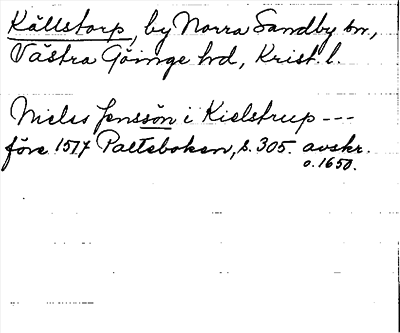 Källstorp, by Norra Sandby sn,
Västra Göinge hd, Krist. l.
Nielss Jenssön i Kielstrup ---
före 1517 Palteboken, s. 305. avskr.
o. 1650.